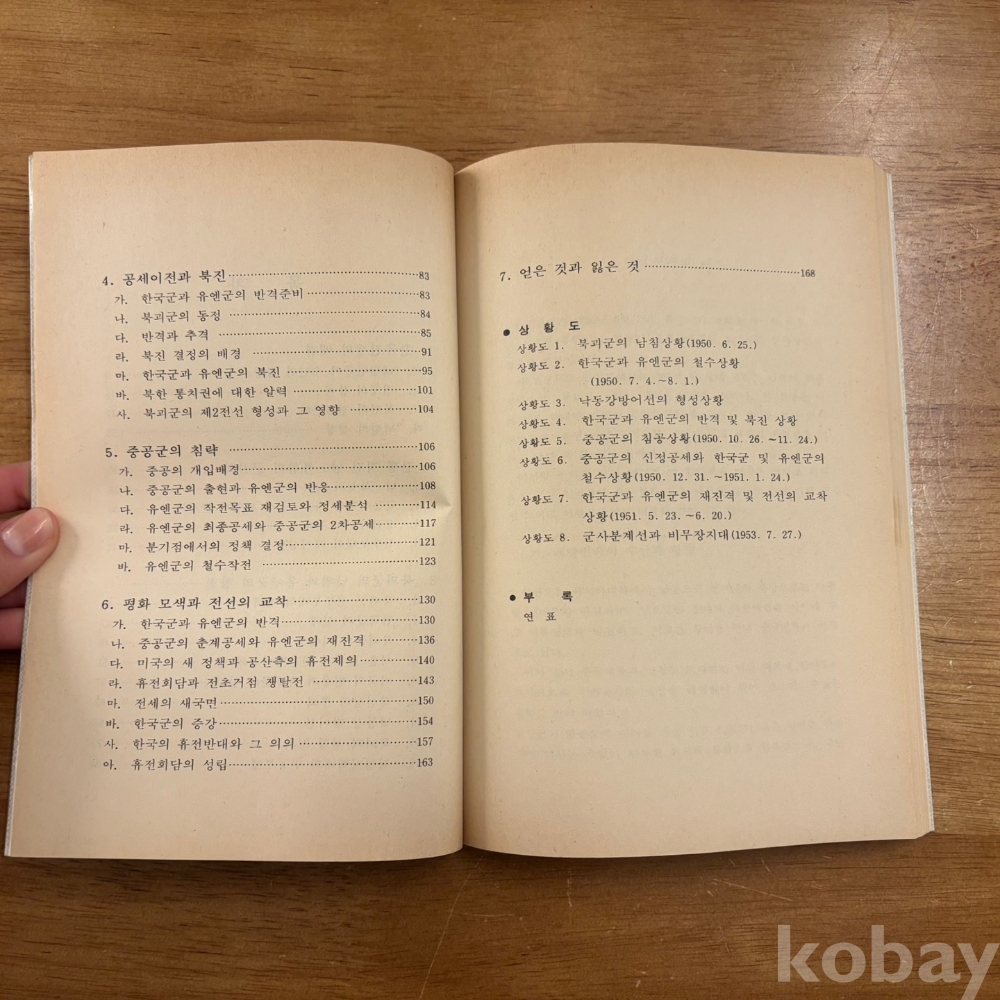 4. 공세이전과 북진 ········ 83
가. 한국군과 유엔군의 반격준비 ········ 83
나. 북괴군의 동정 ········ 84
다. 반격과 추격 ········ 85
라. 북진 결정의 배경 ········ 91
마. 한국군과 유엔군의 북진 ········ 95
바. 북한 통치권에 대한 알력 ········ 101
사. 북괴군의 제2전선 형성과 그 영향 ········ 104
5. 중공군의 침략 ········ 106
가. 중공의 개입배경 ········ 106
나. 중공군의 출현과 유엔군의 반응 ········ 108
다. 유엔군의 작전목표 재검토와 정세분석 ········ 114
라. 유엔군의 최종공세와 중공군의 2차공세 ········ 117
마. 분기점에서의 정책 결정 ········ 121
바. 유엔군의 철수작전 ········ 123
6. 평화 모색과 전선의 교착 ········ 130
가. 한국군과 유엔군의 반격 ········ 130
나. 중공군의 춘계공세와 유엔군의 재진격 ········ 136
다. 미국의 새 정책과 공산측의 휴전제의 ········ 140
라. 휴전회담과 전초거점 쟁탈전 ········ 143
마. 전세의 새국면 ········ 150
바. 한국군의 증강 ········ 154
사. 한국의 휴전반대와 그 의의 ········ 157
아. 휴전회담의 성립 ········ 163
7. 얻은 것과 잃은 것 ········ 168
● 상 황 도
상황도 1. 북괴군의 남침상황(1950. 6. 25.)
상황도 2. 한국군과 유엔군의 철수상황
(1950. 7. 4.～8. 1.)
상황도 3. 낙동강방어선의 형성상황
상황도 4. 한국군과 유엔군의 반격 및 북진 상황
상황도 5. 중공군의 침공상황(1950. 10. 26. ～11. 24.)
상황도 6. 중공군의 신정공세와 한국군 및 유엔군의
철수상황(1950. 12. 31. ～1951. 1. 24.)
상황도 7. 한국군과 유엔군의 재진격 및 전선의 교착
상황(1951. 5. 23. ～6. 20.)
상황도 8. 군사분계선과 비무장지대(1953. 7. 27.)
● 부 록
연 표
kobay